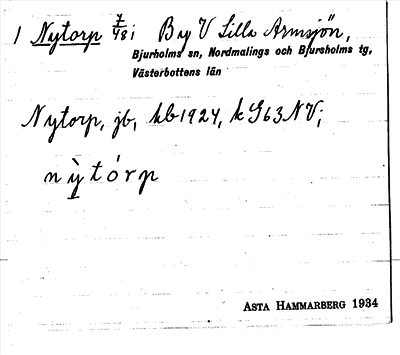 1 Nytorp 7/48 i By V Lilla Armsjön,
Bjurholms sn, Nordmalings och Bjurholms tg,
Västerbottens län
Nytorp, jb, kb 1924, k G63NV;
nỳtórp
ASTA HAMMARBERG 1934